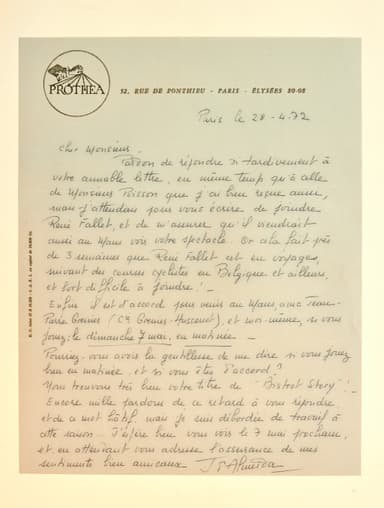 PROTHEA
52, RUE DE PONTHIEU - PARIS - ÉLYSÉES 80-08
Paris le 28-4.72
Cher Monsieur.
Pardon de répondre si tardivement à
votre aimable lettre, en même temps qu'à celle
de Monsieur Poisson que j'ai bien reçue aussi,
mais j'attendais pour vous écrire de joindre
René Fallet, et de m'assurer qu'il viendrait
aussi au Mans voir votre spectacle. Or cela fait près
de 3 semaines que René Fallet est en voyages,
suivant des courses cyclistes en Belgique et ailleurs,
et fort difficile à joindre!
Enfin il est d'accord pour venir au Mans, avec Jean-
Pierre Grenier (Cie Grenier-Hussenot), et moi-même, si vous
jouez, le dimanche 7 mai, en matinée.
Pourriez-vous avoir la gentillesse de me dire si vous jouez
bien en matinée, et si vous êtes d'accord?
Nous trouvons très bien votre titre de "Bistrot Story"!
Encore mille pardons de ce retard à vous répondre
et de ce mot hâtif, mais je suis débordée de travail à
cette saison. J'espère bien vous voir le 7 mai prochain,
et en attendant vous adresse l'assurance de mes
sentiments bien amicaux